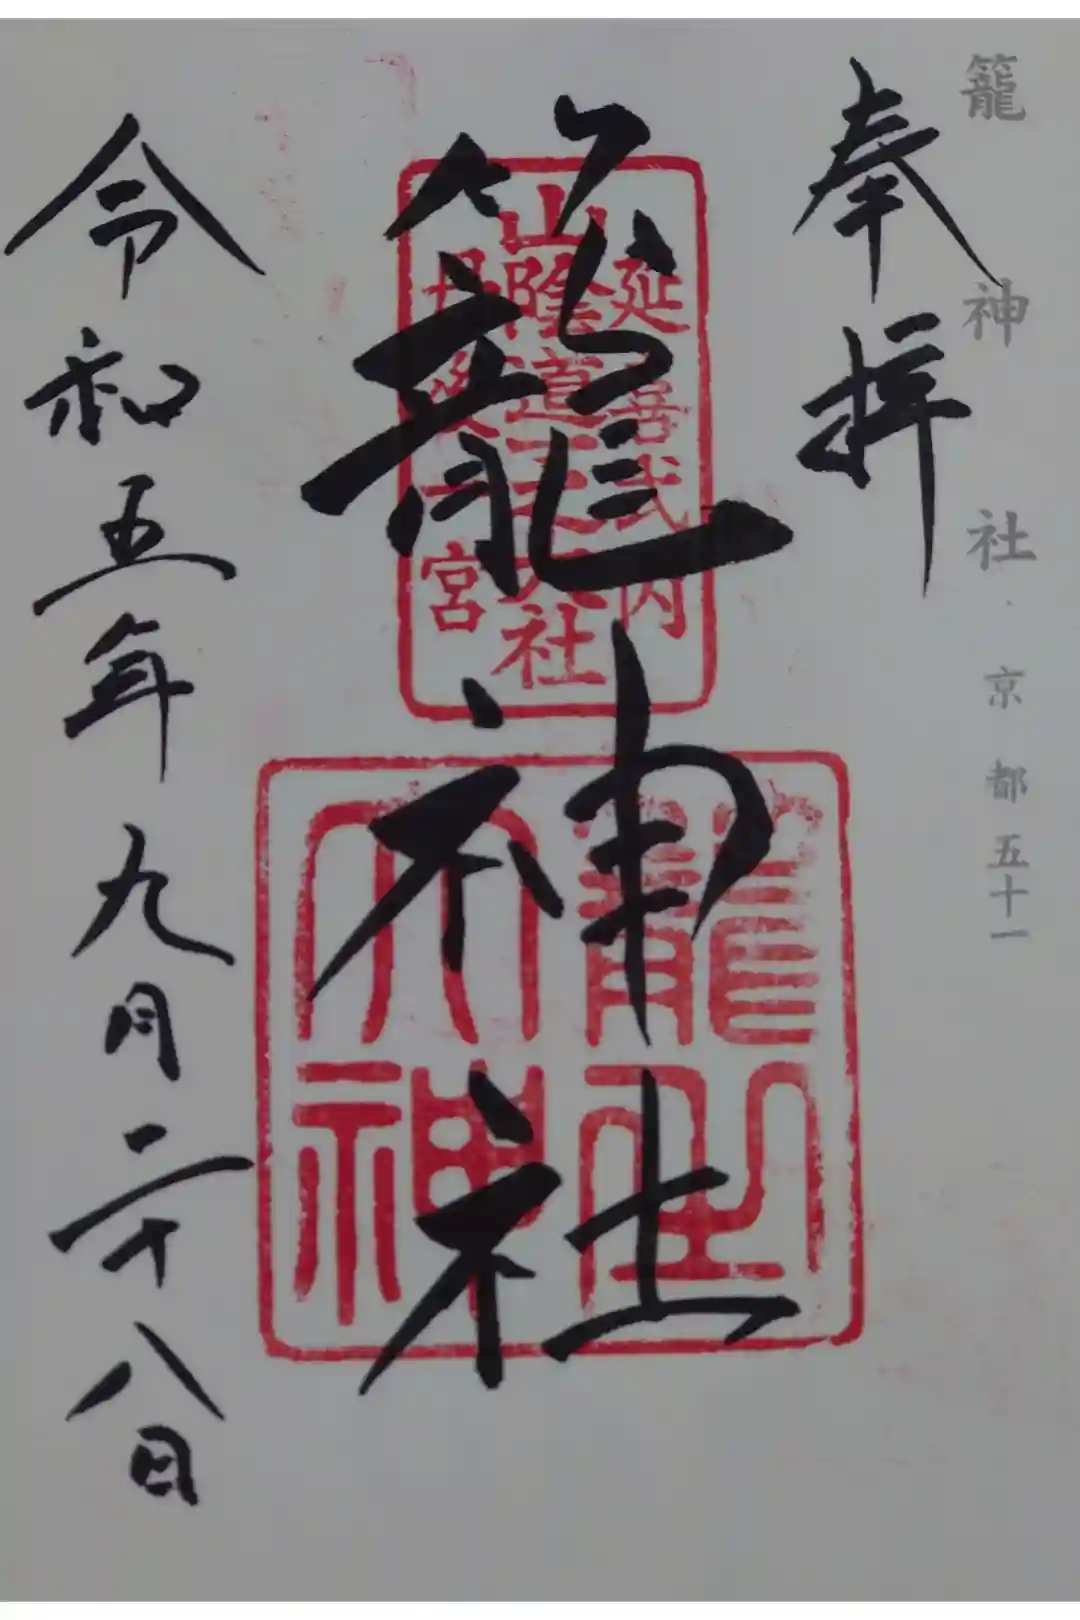 籠神社・京都五十一
奉拝
籠神社
延喜式内
山陰道一之大社
丹後一宮
籠之大神
令和五年九月二十八日